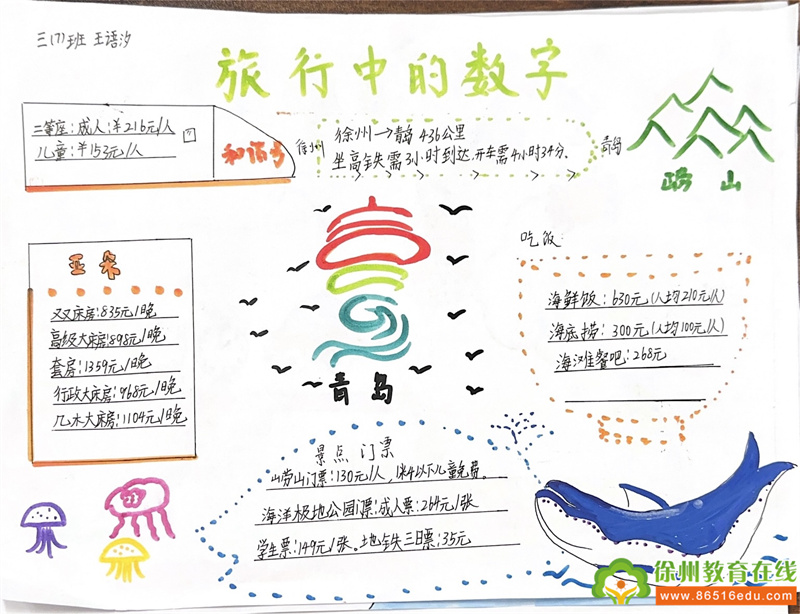 三(7)班 王语汐
旅行中的数字
二等座:成人:¥216元/人
儿童:¥153元/人
和谐号
徐州
徐州→青岛 436公里
坐高铁需3小时到达,开车需4小时34分。
青岛
崂山
亚朵
双床房:835元/晚
高级大床房:898元/晚
套房:1359元/晚
行政大床房:968元/晚
几木大床房:1104元/晚
青岛
吃饭
海鲜饭:630元(人均210元/人)
海底捞:300元(人均100元/人)
海洋佳餐吧:268元
景点门票
崂山门票:130元/人,1米4以下儿童免费。
海洋极地公园票:成人票:264元/张
学生票:149元/张。地铁三日票:35元
徐州教育在线
www.86516edu.com